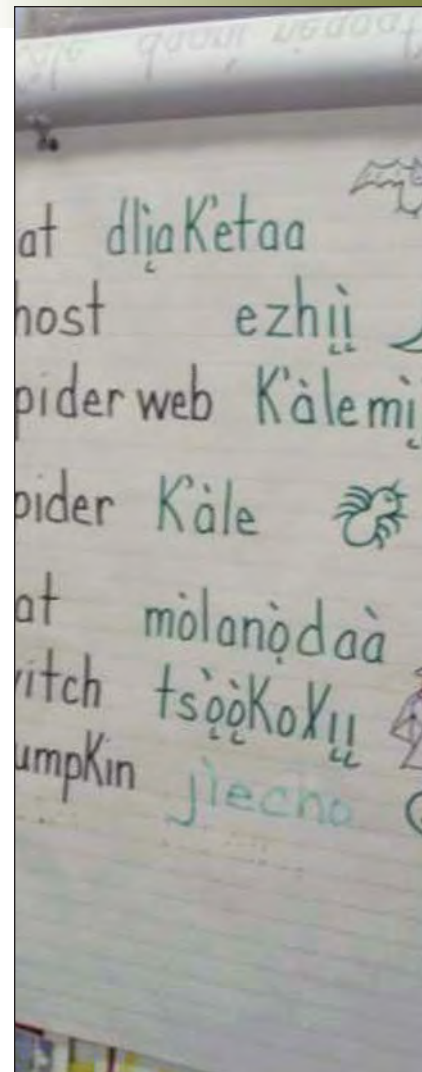 at dlı̨̀aK'etaa
host ezhı̨ı̨̀
pider web K'àlemı̨̀
pider K'àle
at mòlanǫ̀daà
itch tsǫ̀ǫ̀Koxı̨ı̨
umpKin jìecho